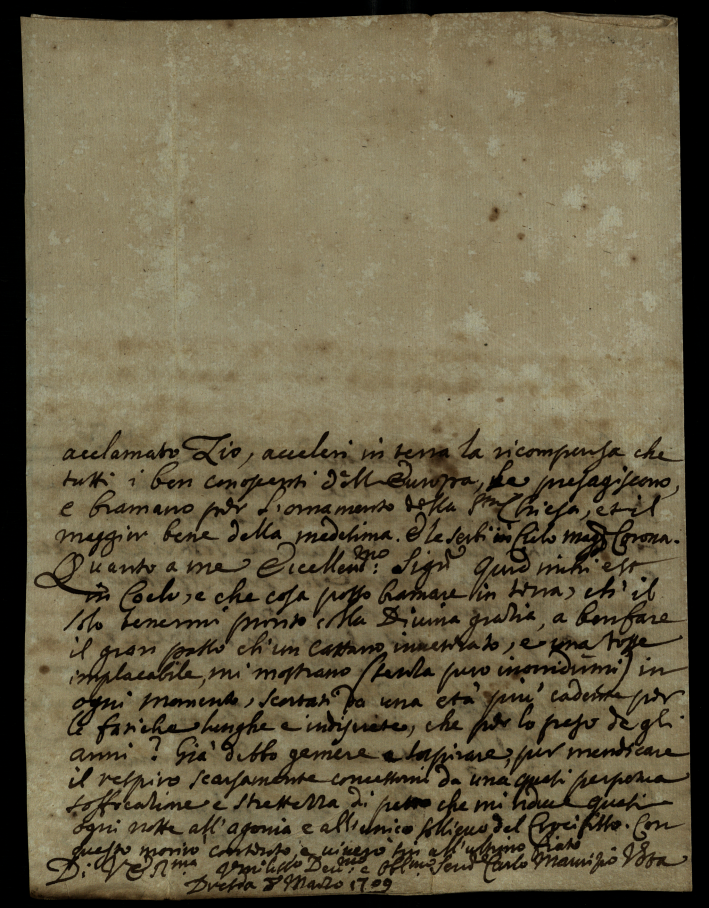 acclamato Zio, acceleri in terra la ricompensa che
tutti i ben conoscenti dell'Europa, le presagiscono,
e bramano per l'ornamento della Sta Chiesa, et il
maggior bene della medesima. E le serbi in Cielo magr Corona.
Quanto a me Eccellenmo: Sigre quid mihi est
in Coelo, e che cosa posso bramare in terra, ch'il
solo tenermi pronto colla Divina gratia, a ben fare
il gran passo ch'un Cattarro inveterato, e una tosse
implacabile, mi mostrano (senza puro inorridirmi) in
ogni momento, scortati da una età più cadente per
le fatiche lunghe e indiscrete, che per lo peso de gli
anni? Già debbo gemere e sospirare, per mendicare
il respiro scarsamente concessomi da una quasi perpetua
soffocatione e strettezza di petto che mi riduce quasi
ogni notte all'agonia e all'unico sollievo del Crocifisso. Con
questo morirò contento, e vivero sin all'ultimo fiato
Di V E Rma Umilissmo Devmo, e Obbmo Servre Carlo Maurizio Vota
Dresda 8 Marzo 1709